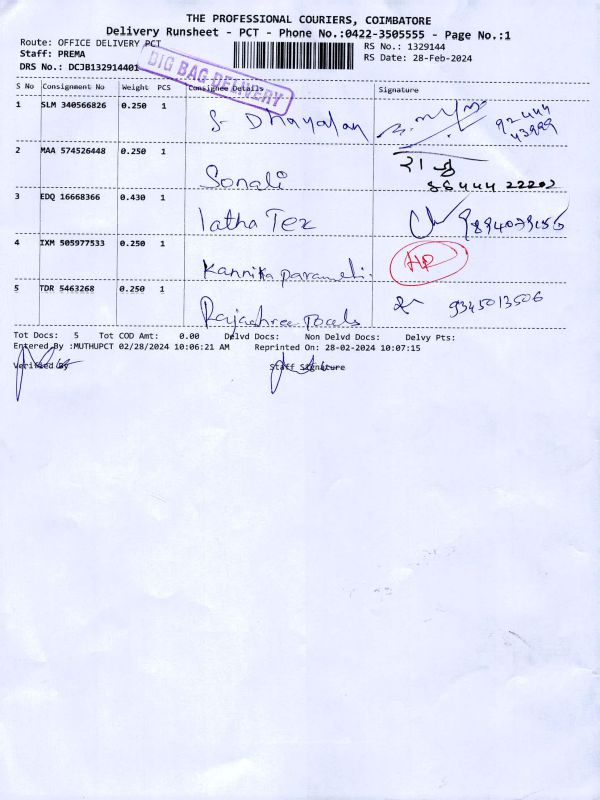 THE PROFESSIONAL COURIERS, COIMBATORE
Delivery Runsheet - PCT - Phone No.:0422-3505555 - Page No.:1
Route: OFFICE DELIVERY PCT
RS No.: 1329144
Staff: PREMA
RS Date: 28-Feb-2024
DRS No.: DCJB132914401
DIG BAG DELIVERY
S No Consignment No Weight PCS Consignee Details Signature
1 SLM 340566826 0.250 1 S- Dhayalan
2 MAA 574526448 0.250 1 Sonali
3 EDQ 16668366 0.430 1 latha Tex
4 IXM 505977533 0.250 1 Kannika
5 TDR 5463268 0.250 1 9345013506
Tot Docs: 5 Tot COD Amt: 0.00 Delvd Docs: Non Delvd Docs: Delvy Pts:
Entered By :MUTHUPCT 02/28/2024 10:06:21 AM Reprinted On: 28-02-2024 10:07:15
Verified By Staff Signature